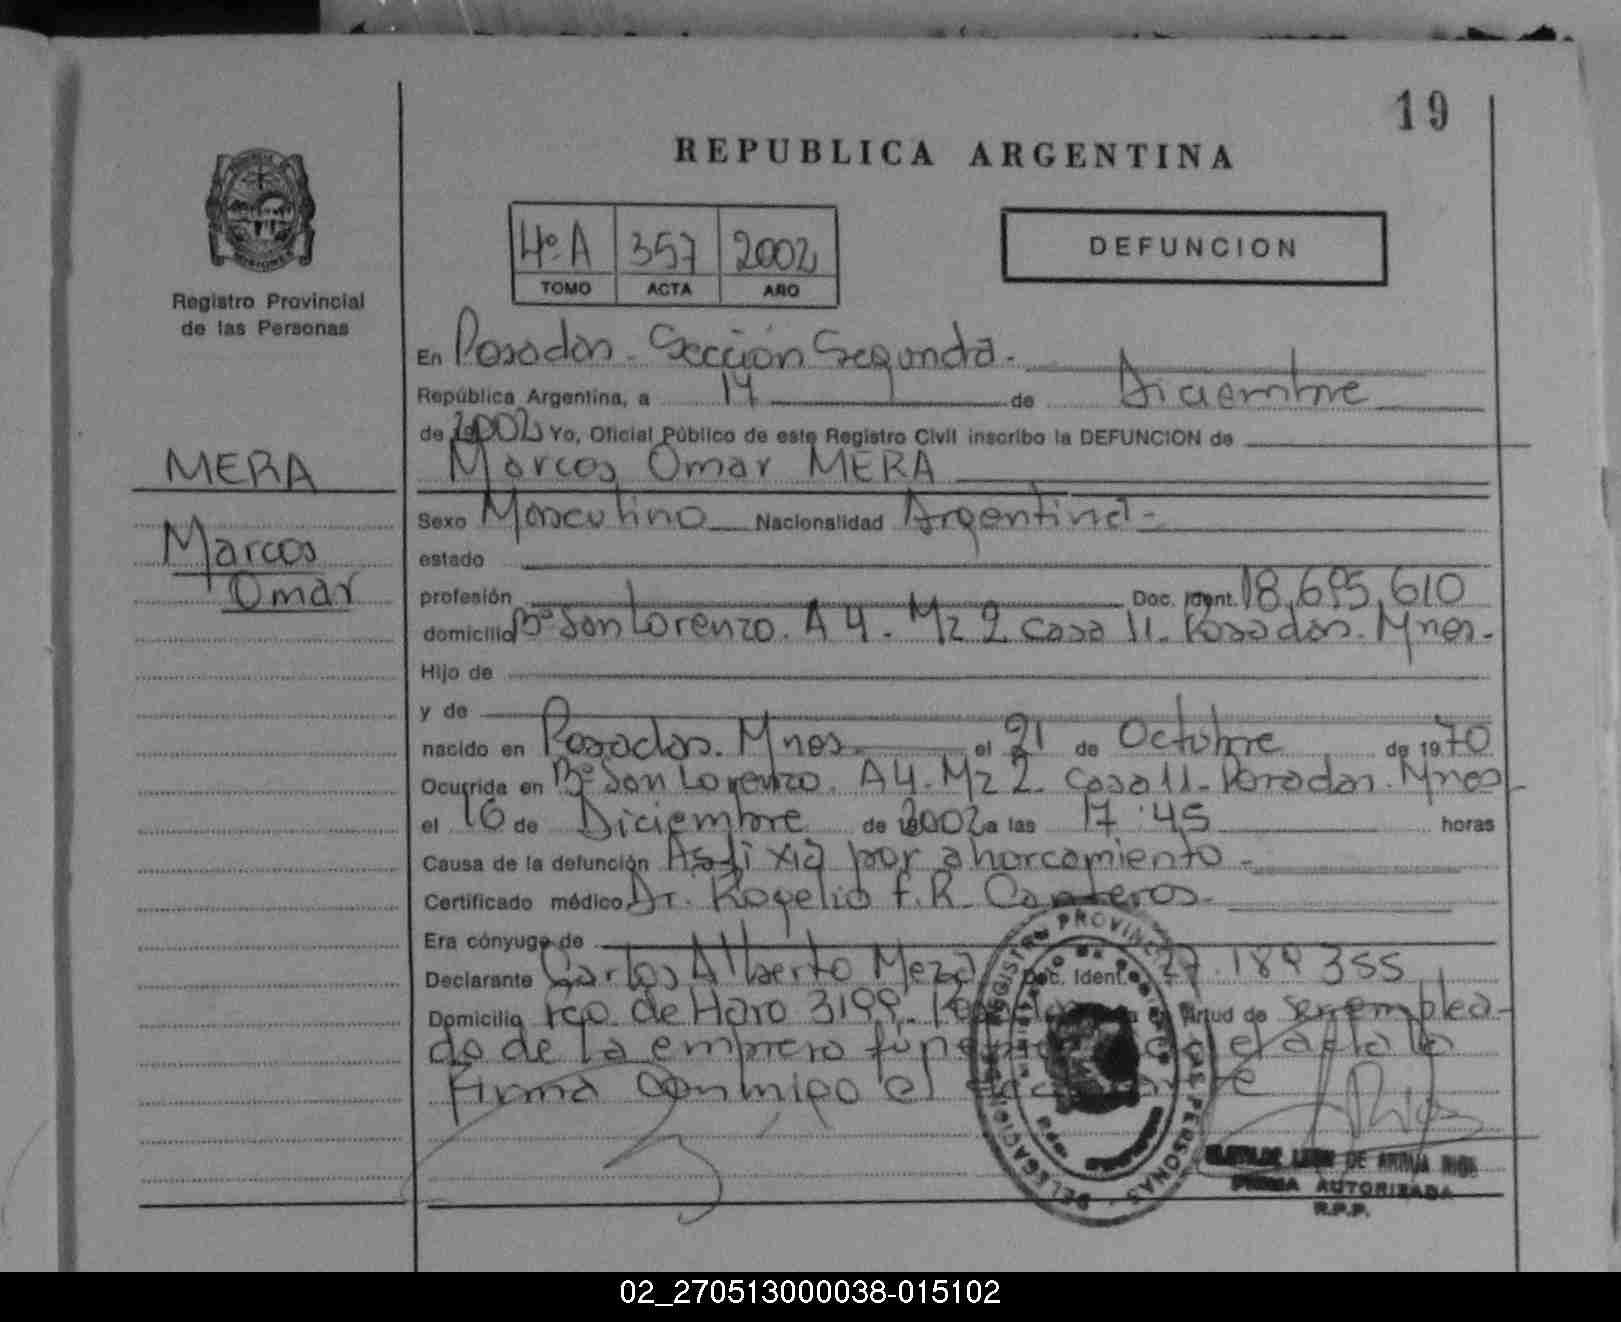 19
REPUBLICA ARGENTINA
4º A 357 2002
TOMO ACTA AÑO
DEFUNCION
MISIONES
Registro Provincial
de las Personas
MERA
Marcos
Omar
En Posadas. Sección Segunda.
República Argentina, a 17 de Diciembre
de 2002 Yo, Oficial Público de este Registro Civil inscribo la DEFUNCION de
Marcos Omar MERA
Sexo Masculino Nacionalidad Argentina
estado
profesión Doc. Ident. 18.695.610
domicilio Bº San Lorenzo. A 4. Mz 2 casa 11. Posadas. Mnes.
Hijo de
y de
nacido en Posadas. Mnes. el 21 de Octubre de 1970
Ocurrida en Bº San Lorenzo. A4. Mz 2. casa 11. Posadas. Mnes
el 16 de Diciembre de 2002 a las 17:45 horas
Causa de la defunción Asfixia por ahorcamiento
Certificado médico Dr. Rogelio F. R. Canteros.
Era cónyuge de
Declarante Carlos Alberto Meza Doc. Ident. 27.184355
Domicilio Fco. de Haro 3199. virtud de ser emplea-
do de la empresa el acta la
Firma conmigo el
REGISTRO PROVINCIAL DE LAS PERSONAS
DELEGACION
DE ARRUA RIOS
FIRMA AUTORIZADA
R.P.P.
02_270513000038-015102